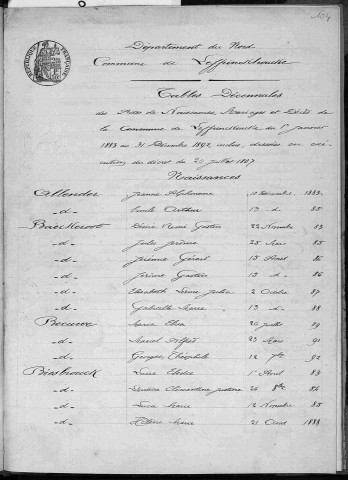 104
Département du Nord
Commune de Leffrinckoucke
Tables Décennales
des Actes de Naissances, Mariages et Décès de
la Commune de Leffrinckoucke du 1er Janvier
1883 au 31 Décembre 1892 inclus, dressées en exé-
cution du décret du 20 juillet 1807
Naissances
Allender Jeanne Philomène 10 Décembre 1883
-d- Emile Arthur 13 -d- 85
Baeckeroot Désiré René Gaston 22 Novembre 83
-d- Jules Jérôme 25 Mai 85
-d- Jérémie Gérard 15 Août 86
-d- Jérôme Gaston 13 -d- 86
-d- Elisabeth Julia 2 Octobre 87
-d- Gabrielle Marie 13 -d- 88
Becuwe Maria Elisa 26 juillet 89
-d- Marcel Alfred 23 Mars 91
-d- Georges Théophile 12 7bre 92
Biesbrouck Elodie 1er Avril 83
-d- Clémentine Justine 24 8bre 84
-d- Marie 12 Novembre 85
-d- Hélène Marie 21 Août 1888